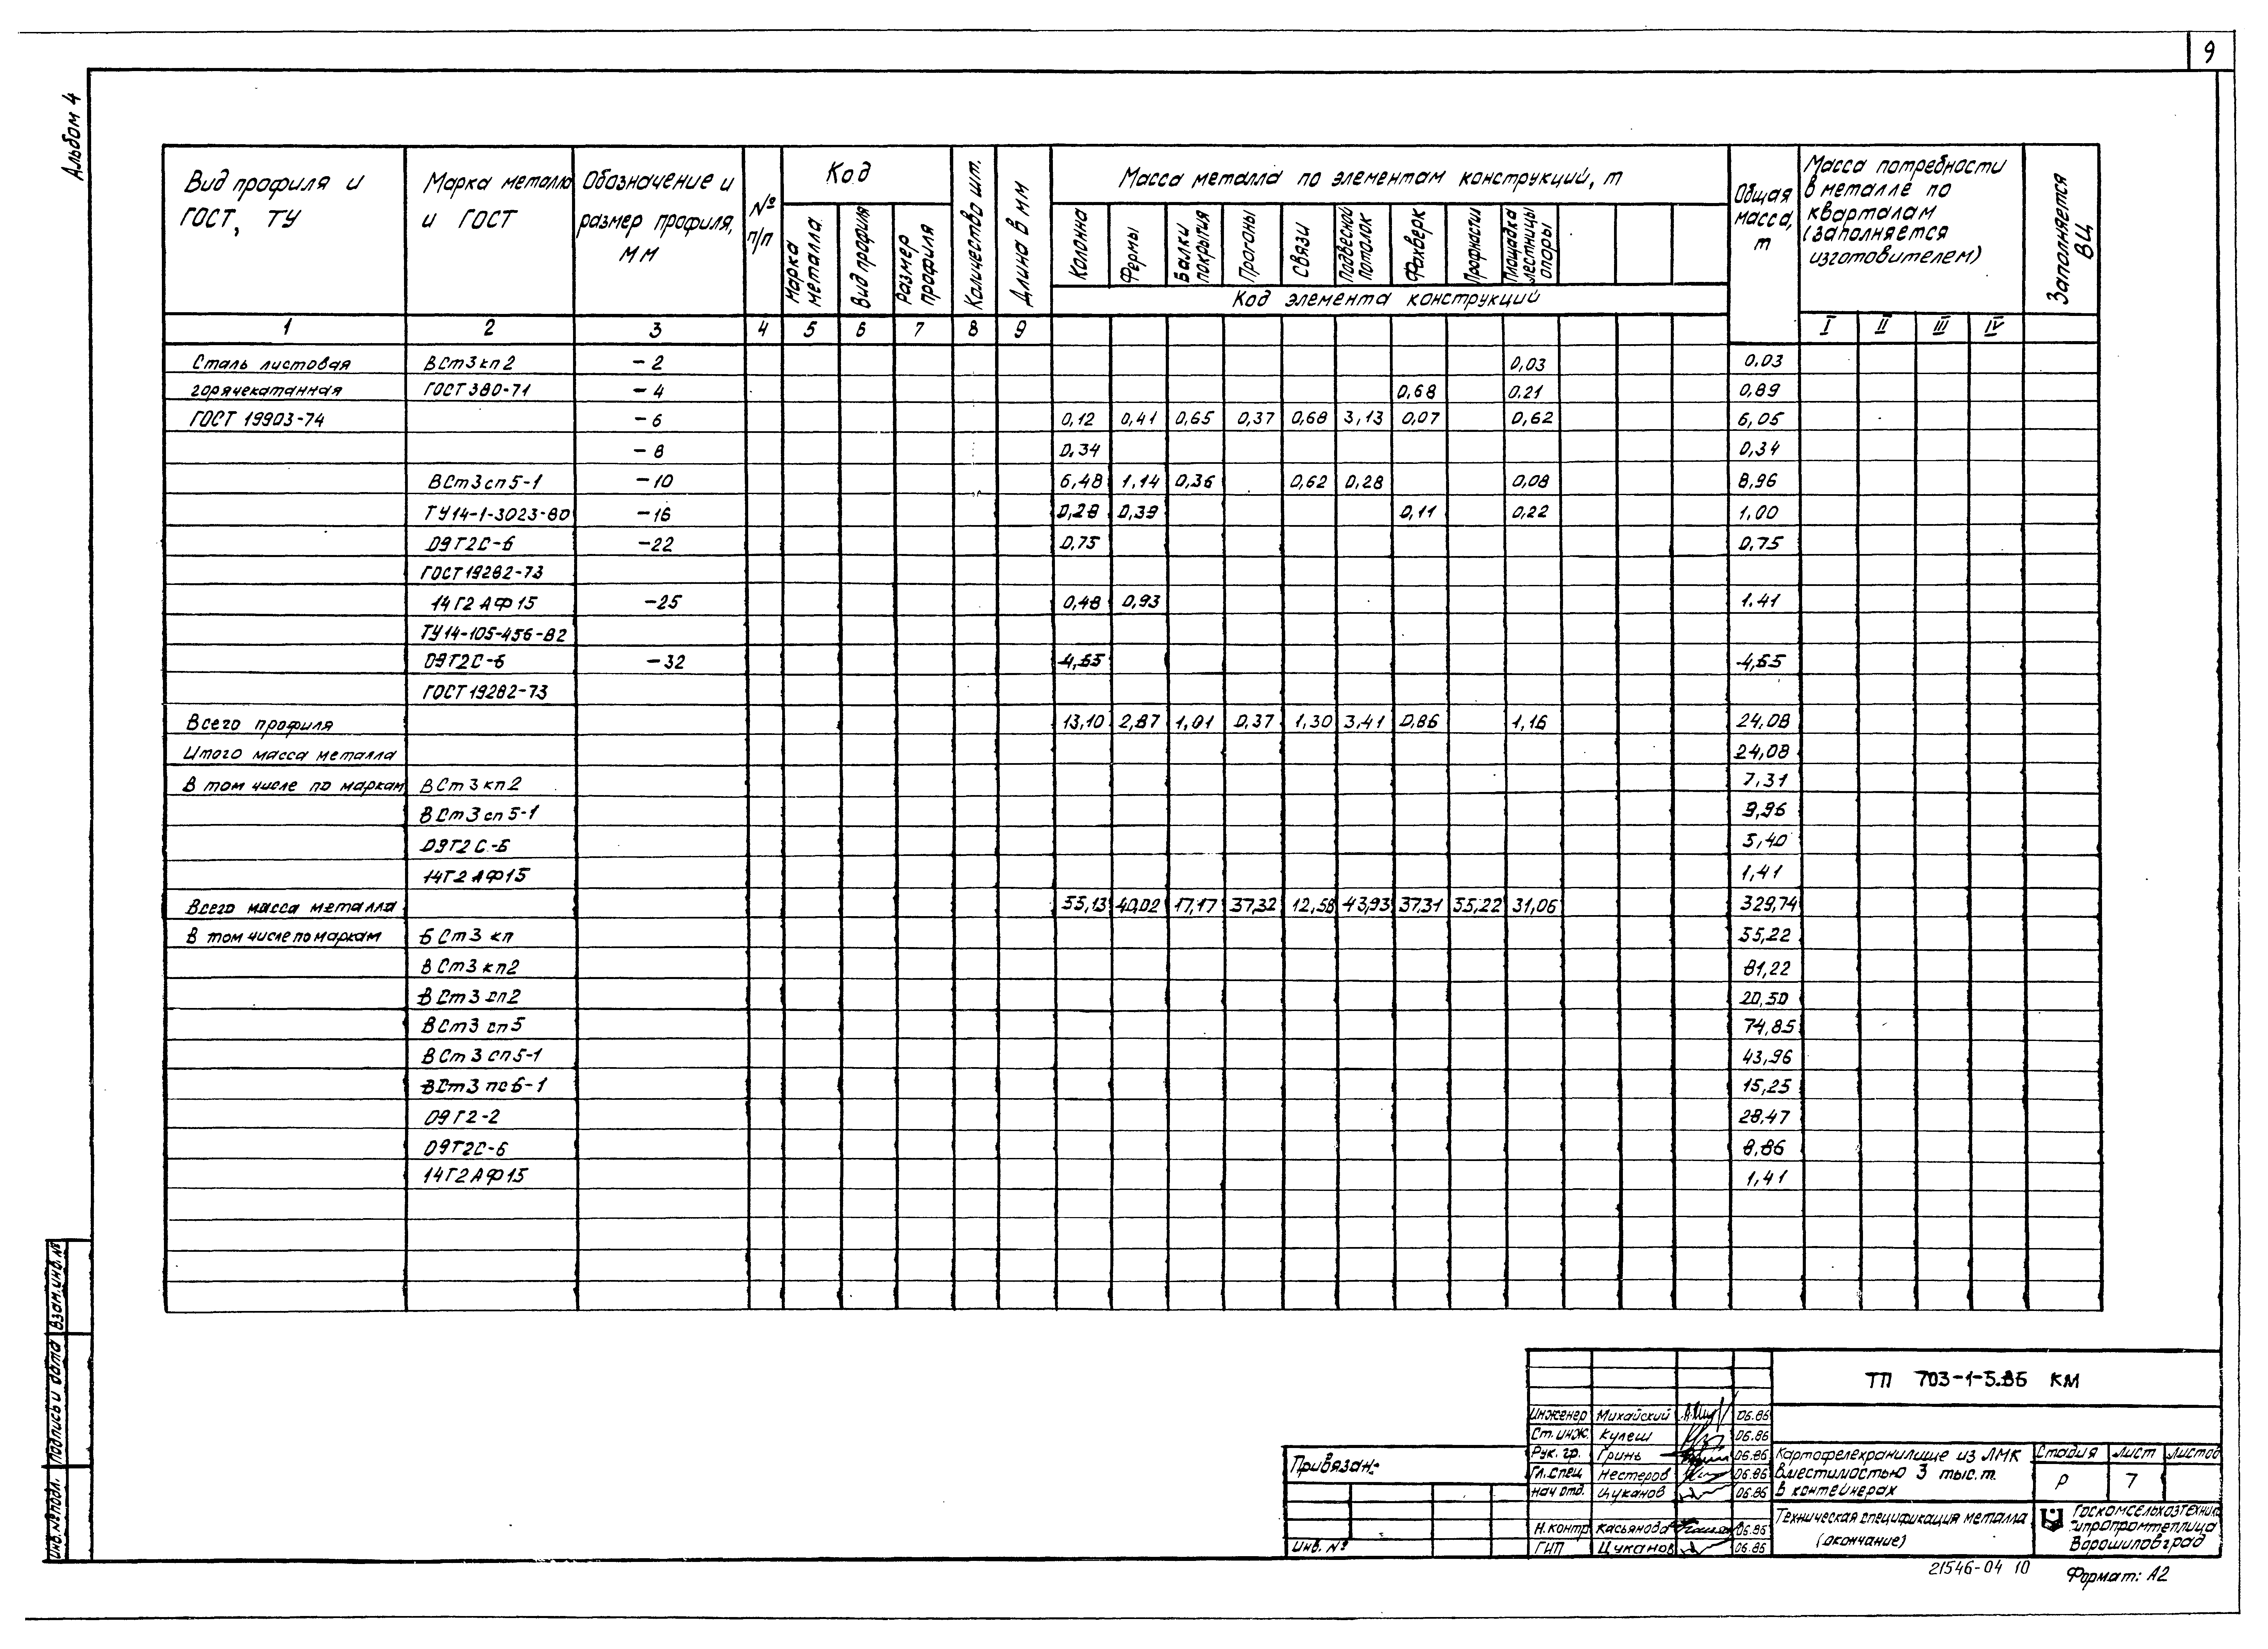 9
Альбом 4
Вид профиля и ГОСТ, ТУ
Марка металла и ГОСТ
Обозначение и размер профиля, мм
№ п/п
Код
Марка металла
Вид профиля
Размер профиля
Количество шт.
Длина в мм
Масса металла по элементам конструкций, т
Колонна
Фермы
Балки покрытия
Прогоны
Связи
Подвесной потолок
Фахверк
Профнастил
Площадка лестницы опоры
Код элемента конструкций
Общая масса, т
Масса потребности в металле по кварталам (заполняется изготовителем)
Заполняется ВЦ
1 2 3 4 5 6 7 8 9 I II III IV
Сталь листовая ВСт3кп2 -2 0,03 0,03
горячекатанная ГОСТ 380-71 -4 0,68 0,21 0,89
ГОСТ 19903-74 -6 0,12 0,41 0,65 0,37 0,68 3,13 0,07 0,62 6,05
-8 0,34 0,34
ВСт3сп5-1 -10 6,48 1,14 0,36 0,62 0,28 0,08 8,96
ТУ14-1-3023-80 -16 0,28 0,39 0,11 0,22 1,00
09Г2С-6 -22 0,75 0,75
ГОСТ 19282-73
14Г2АФ15 -25 0,48 0,93 1.41
ТУ14-105-456-82
09Г2С-6 -32 4,65 4,65
ГОСТ 19282-73
Всего профиля 13,10 2,87 1,01 0,37 1,30 3,41 0,86 1,16 24,08
Итого масса металла 24,08
В том числе по маркам ВСт3кп2 7,31
ВСт3сп5-1 9,96
09Г2С-6 5,40
14Г2АФ15 1,41
Всего масса металла 55,13 40,02 17,17 37,32 12,58 43,93 37,31 55,22 31,06 329,74
В том числе по маркам БСт3кп 55,22
ВСт3кп2 81,22
ВСт3сп2 20,50
ВСт3сп5 74,85
ВСт3сп5-1 43,96
ВСт3пс6-1 15,25
09Г2-2 28,47
09Г2С-6 8,86
14Г2АФ15 1,41
Взам.инв.№
Подпись и дата
Инв.№подл.
Привязан:
Инв. №
Инженер Михайский 06.86
Ст.инж. Кулеш 06.86
Рук. гр. Гринь 06.86
Гл.спец Нестеров 06.86
Нач отд. Цуканов 06.86
Н.контр Касьянова 06.86
ГИП Цуканов 06.86
ТП 703-1-5.86 КМ
Картофелехранилище из ЛМК
вместимостью 3 тыс.т.
в контейнерах
Стадия Лист Листов
Р 7
Техническая спецификация металла
(окончание)
Госкомсельхозтехника
Гипропромтеплица
Ворошиловград
21546-04 10
Формат: А2